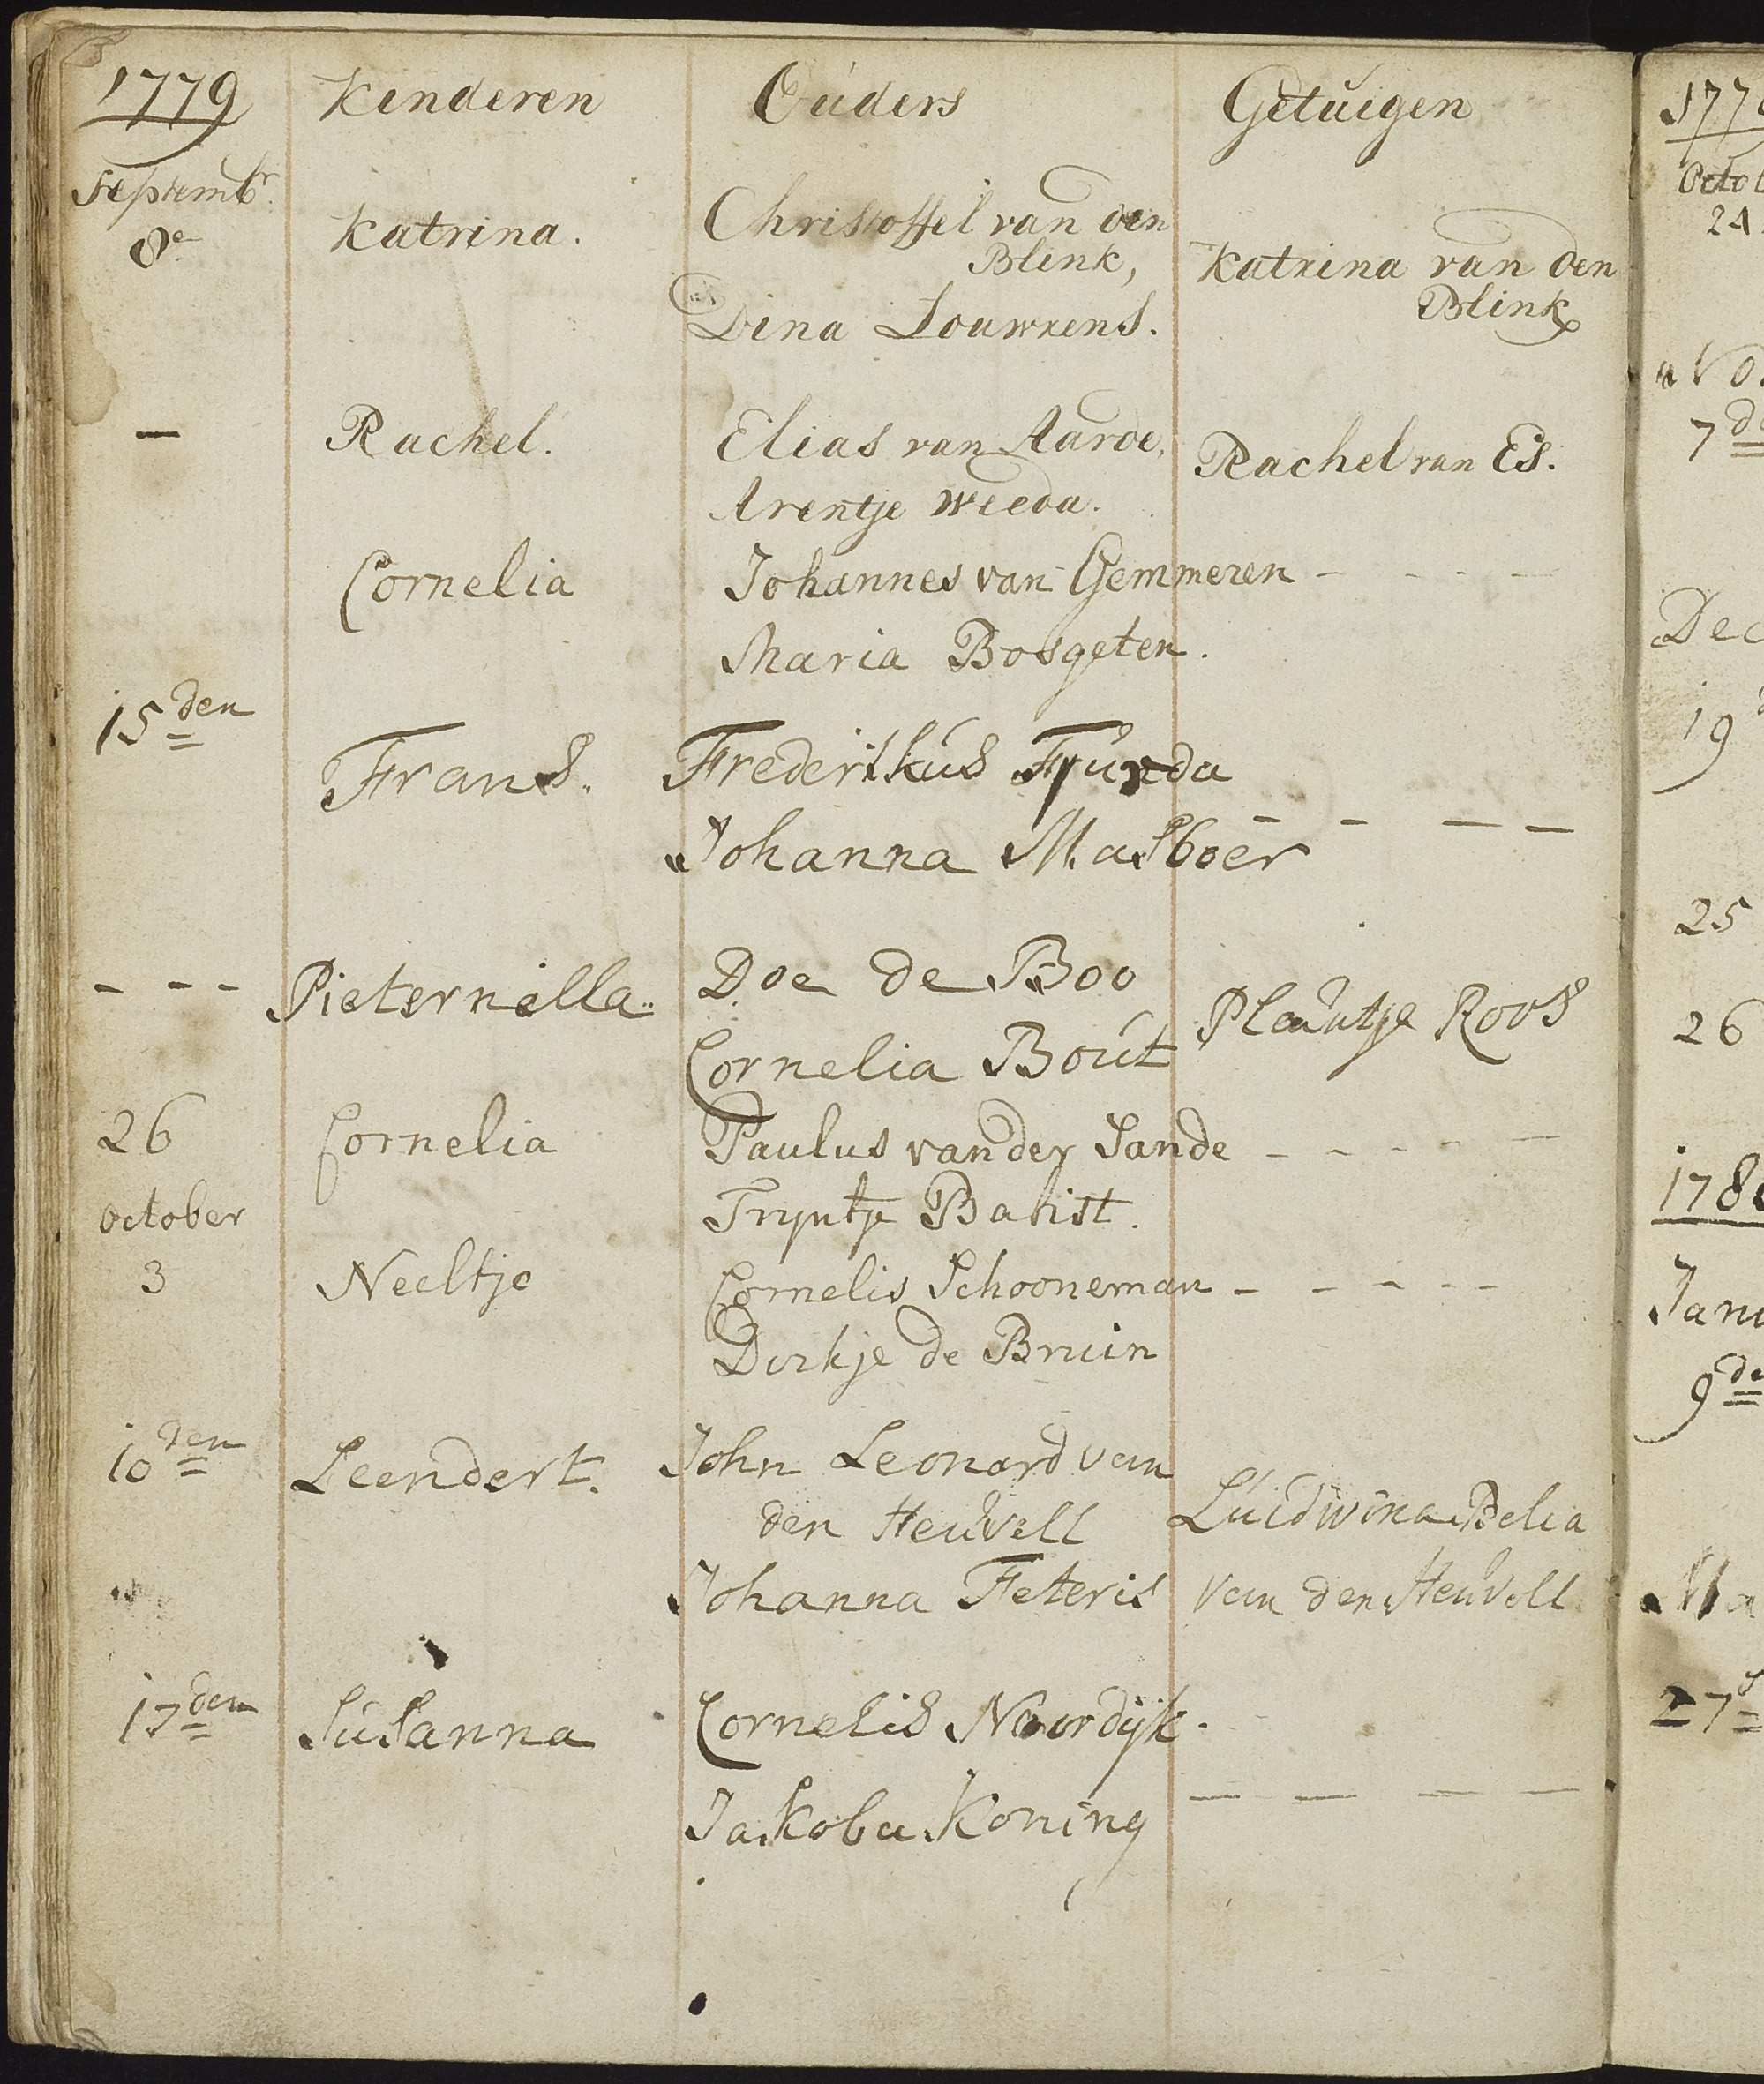 1779 Kinderen Ouders Getuigen
Septembr.
8e Katrina. Christoffel van den
Blink, Katrina van den
Blink
Dina Louwrens.
— Rachel. Elias van Aarde, Rachel van Es.
Arentje Weeda.
Cornelia Johannes van Gemmeren - - - -
Maria Bosgeter.
15den
Frans. Frederikus
Johanna Masboer - - - -
- - - Pieternella. Doe de Boo
Pleuntje Roos
Cornelia Bout
26 Cornelia Paulus van der Sande - - - - -
october Tryntje Batist.
3 Neeltje Cornelis Schooneman - - - - -
Dirkje de Bruin
10den Leendert. John Leonard van
den Heuvell Luidwina Belia
Johanna Feteris van den Heuvell
17den Susanna Cornelis Noordijk.
Jakoba Koning — — — —
Octob
24
7de
Dec
19
25
26
1780
Janu
9de
Ma
27